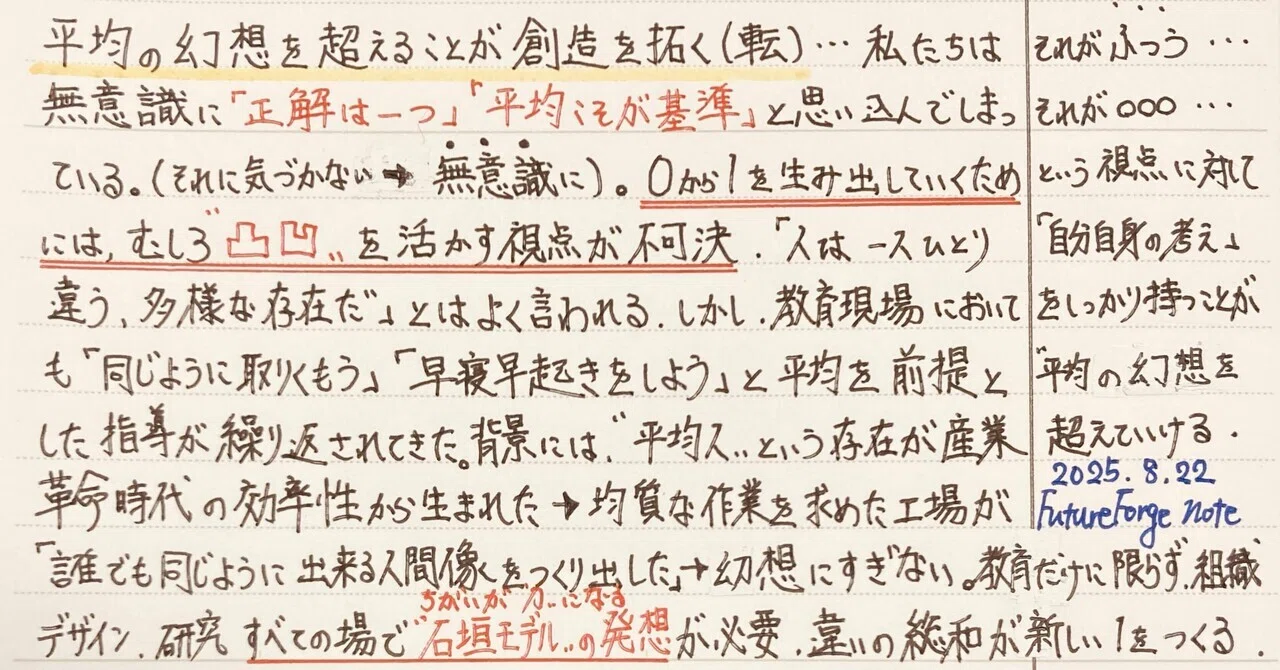 平均の幻想を超えることが創造を拓く(転)… 私たちは
無意識に「正解は一つ」「平均こそが基準」と思い込んでしまっ
ている。(それに気づかない → 無意識に)。0から1を生み出していくため
には、むしろ〝凸凹〟を活かす視点が不可決.「人は一人ひとり
違う、多様な存在だ」とはよく言われる.しかし.教育現場において
も「同じように取りくもう」「早寝早起きをしよう」と平均を前提と
した指導が繰り返されてきた。背景には、〝平均人〟という存在が産業
革命時代の効率性から生まれた → 均質な作業を求めた工場が
「誰でも同じように出来る人間像」をつくり出した」→ 幻想にすぎない。教育だけに限らず.組織
デザイン.研究.すべての場で〝石垣モデル〟の発想が必要.違いの総和が新しい1をつくる.
ちがいが〝力〟になる
それがふつう …
それが○○○ …
という視点に対して
「自分自身の考え」
をしっかり持つことが
〝平均の幻想を
超えていける.
2025.8.22
FutureForge note